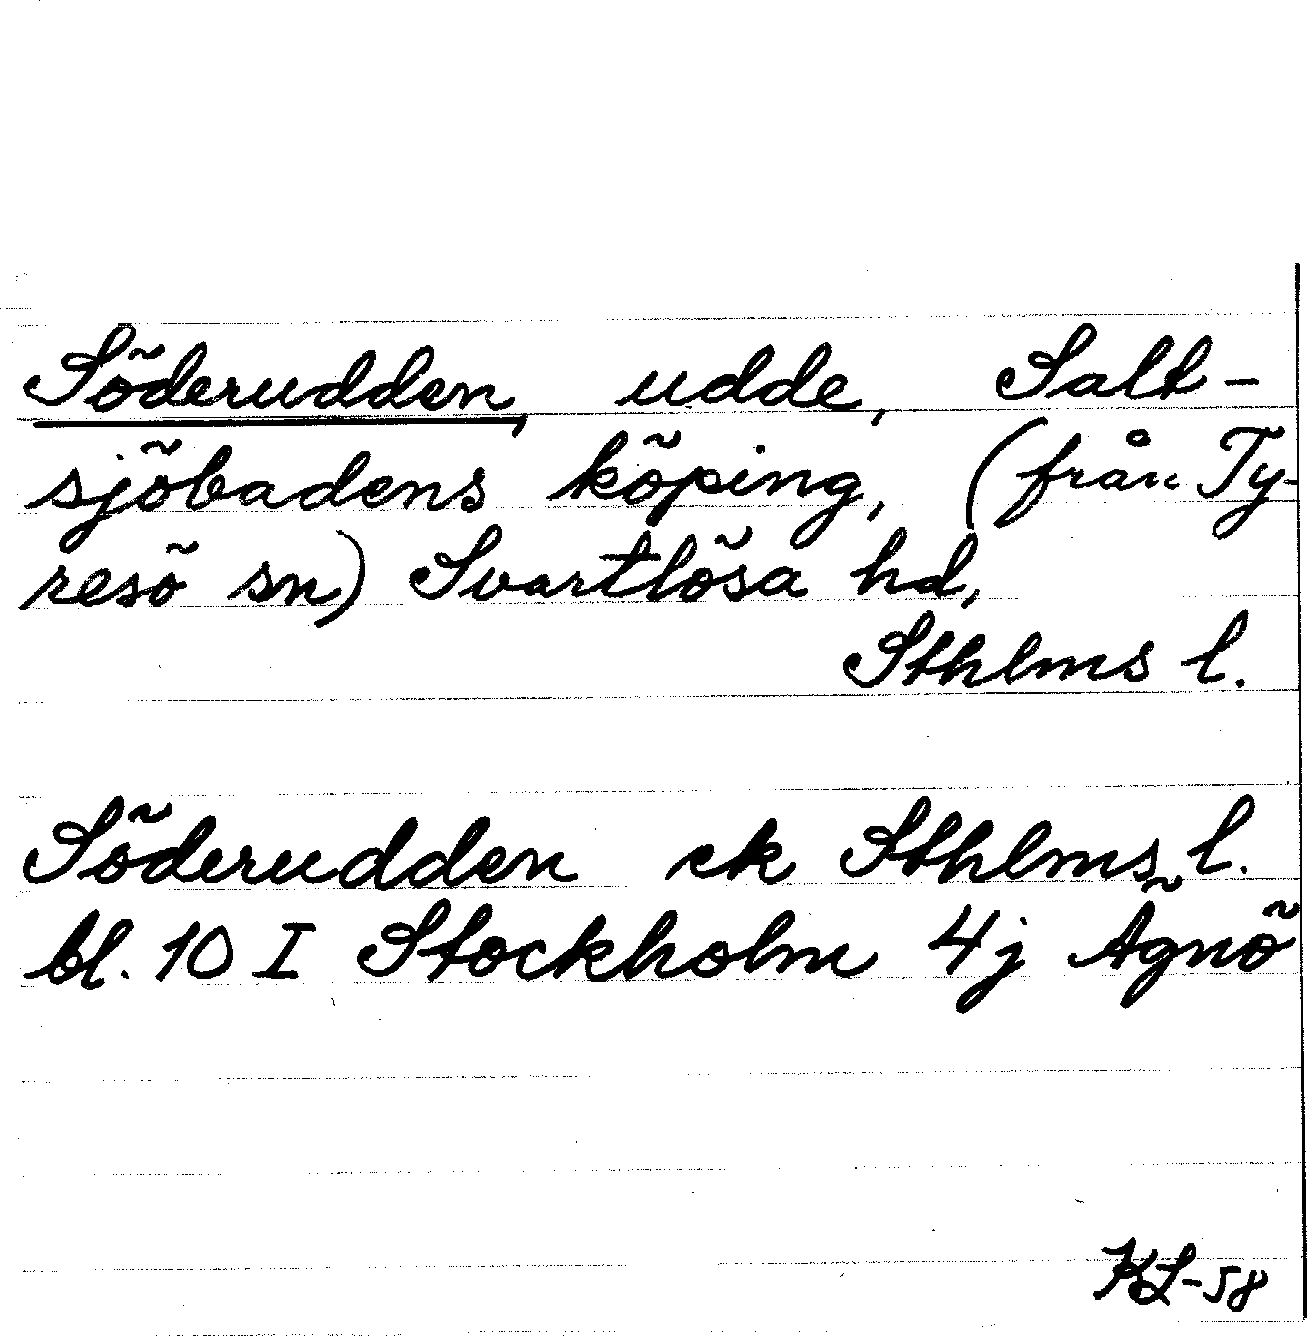 Söderudden, udde, Salt-
sjöbadens köping, (från Ty-
resö sn) Svartlösa hd,
Sthlms l.
Söderudden ek Sthlms l.
bl. 10 I Stockholm 4j Ägnö
KL-58